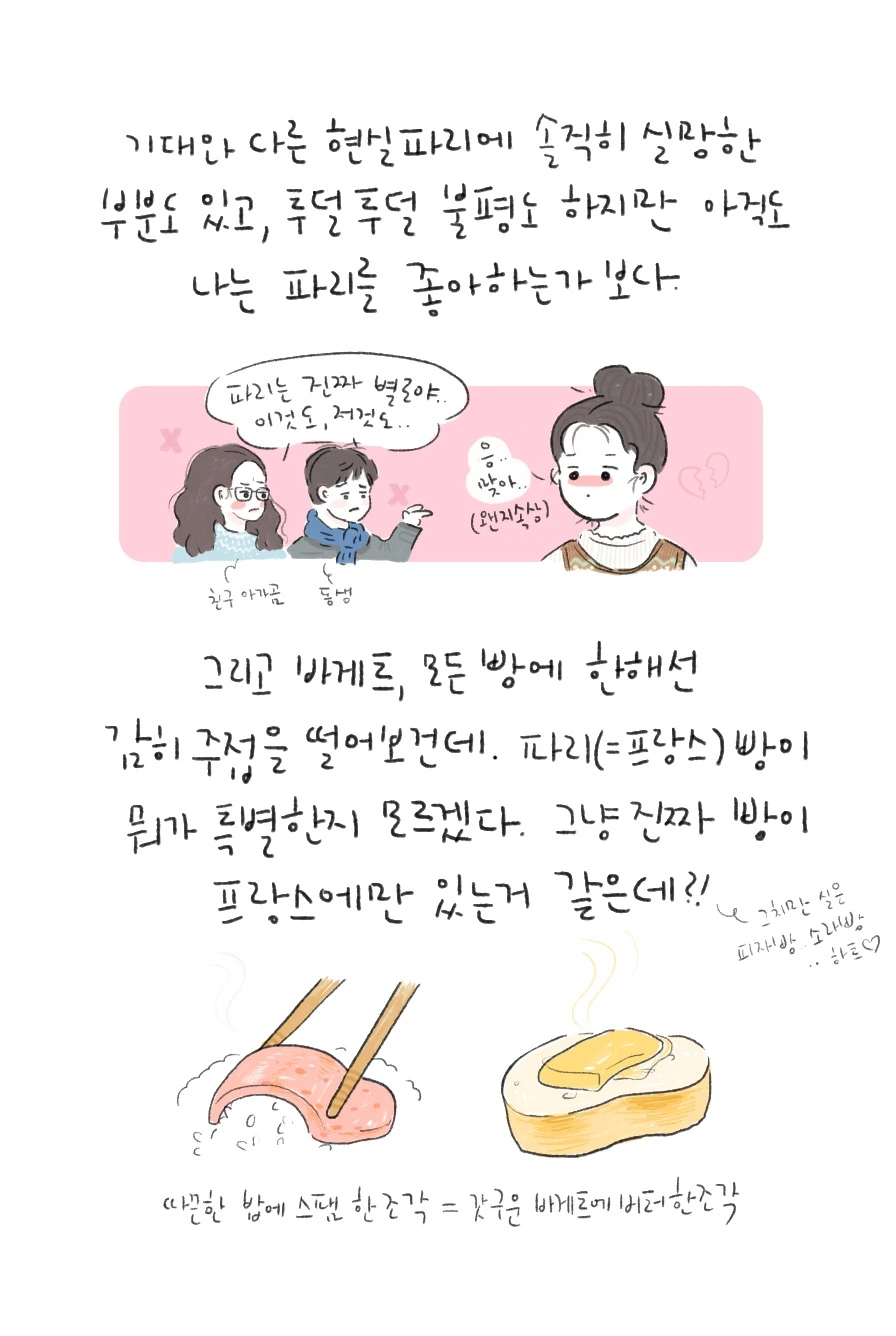 기대와 다른 현실파리에 솔직히 실망한
부분도 있고, 투덜투덜 불평도 하지만 아직도
나는 파리를 좋아하는가보다.
파리는 진짜 별로야..
이것도, 저것도..
응..
맞아..
(왠지속상)
친구 아가곰
동생
그리고 바게트, 모든 빵에 한해선
감히 주접을 떨어보건데. 파리(=프랑스)빵이
뭐가 특별한지 모르겠다. 그냥 진짜 빵이
프랑스에만 있는거 같은데?!
그치만 실은
피자빵.. 소라빵
.. 하트♡
따끈한 밥에 스팸 한조각 = 갓구운 바게트에 버터한조각